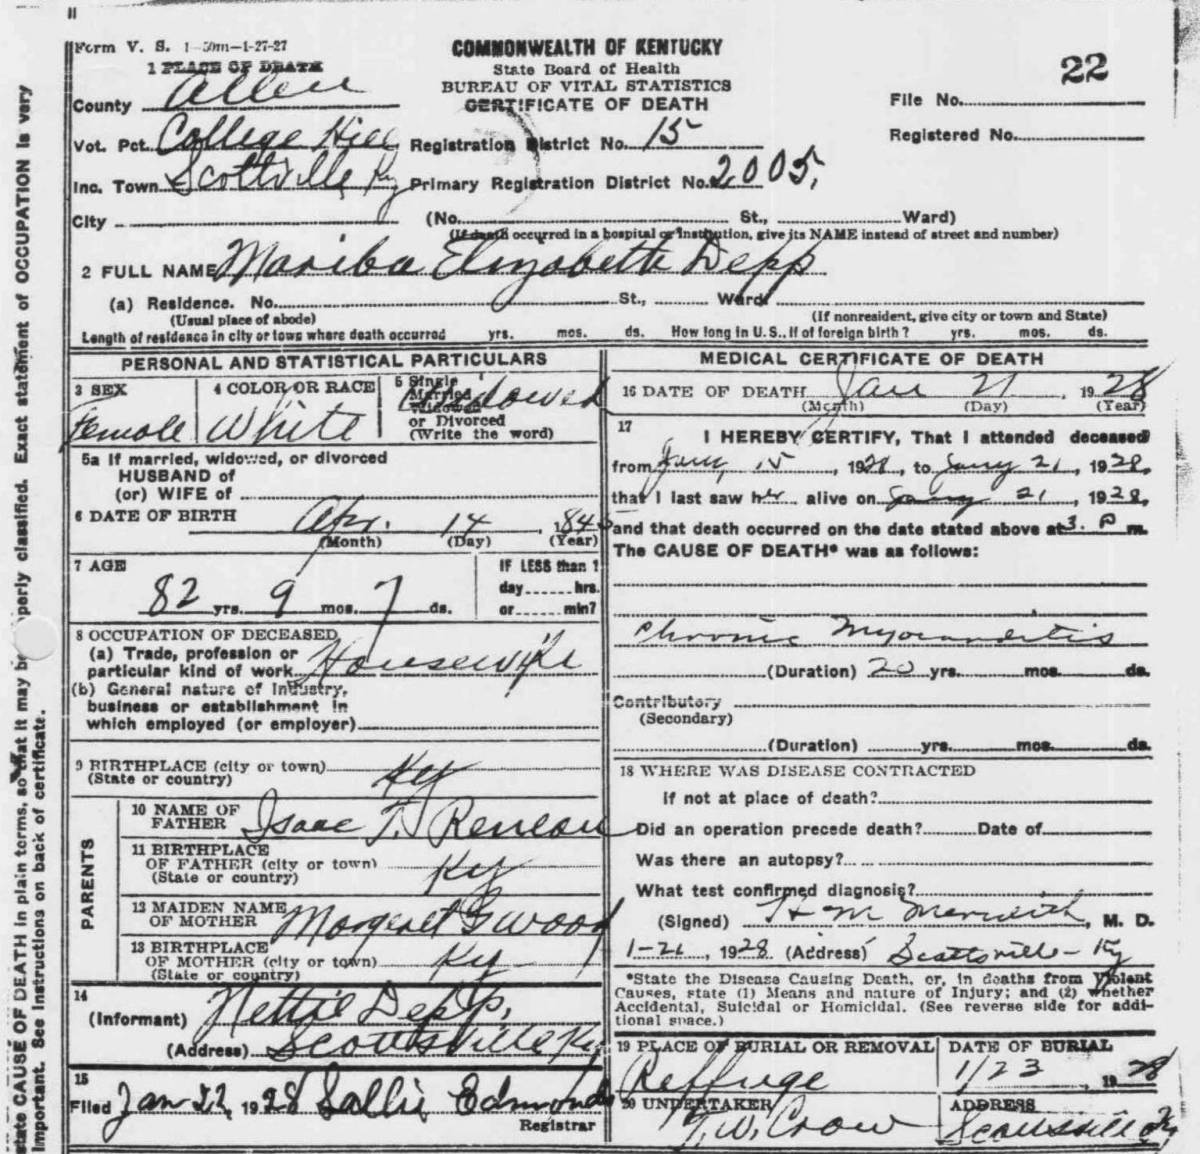 Form V. S. 1-50m-1-27-27
COMMONWEALTH OF KENTUCKY
State Board of Health
BUREAU OF VITAL STATISTICS
CERTIFICATE OF DEATH
22
File No.
Registered No.
1 PLACE OF DEATH
County Allen
Vot. Pct. College Hill Registration District No. 15
Inc. Town Scottville Ky Primary Registration District No. 2005,
City (No. St., Ward)
(If death occurred in a hospital or institution, give its NAME instead of street and number)
2 FULL NAME Mariba Elizabeth Depp
(a) Residence. No. St., Ward
(Usual place of abode) (If nonresident, give city or town and State)
Length of residence in city or town where death occurred yrs. mos. ds. How long in U.S., if of foreign birth? yrs. mos. ds.
PERSONAL AND STATISTICAL PARTICULARS
3 SEX Female
4 COLOR OR RACE White
5 Single Married Widowed or Divorced (Write the word) Widowed
5a If married, widowed, or divorced
HUSBAND of
(or) WIFE of
6 DATE OF BIRTH Apr. 14 1845
(Month) (Day) (Year)
7 AGE 82 yrs. 9 mos. 7 ds.
IF LESS than 1
day hrs.
or min?
8 OCCUPATION OF DECEASED
(a) Trade, profession or
particular kind of work Housewife
(b) General nature of Industry,
business or establishment in
which employed (or employer)
9 BIRTHPLACE (city or town)
(State or country) Ky
PARENTS
10 NAME OF
FATHER Isaac T. Reneau
11 BIRTHPLACE
OF FATHER (city or town)
(State or country) Ky
12 MAIDEN NAME
OF MOTHER Margaret G wood
13 BIRTHPLACE
OF MOTHER (city or town)
(State or country) Ky
14
(Informant) Nettie Depp,
(Address) Scottsville Ky
15
Filed Jan 22, 1928 Sallie Edmonds
Registrar
MEDICAL CERTIFICATE OF DEATH
16 DATE OF DEATH Jan 21 1928
(Month) (Day) (Year)
17
I HEREBY CERTIFY, That I attended deceased
from Jany 15, 1928, to Jany 21, 1928,
that I last saw her alive on Jany 21, 1928,
and that death occurred on the date stated above at 3. P m.
The CAUSE OF DEATH* was as follows:
Chronic Myocarditis
(Duration) 20 yrs. mos. ds.
Contributory
(Secondary)
(Duration) yrs. mos. ds.
18 WHERE WAS DISEASE CONTRACTED
If not at place of death?
Did an operation precede death? Date of
Was there an autopsy?
What test confirmed diagnosis?
(Signed) H M Meredith, M. D.
1-21, 1928 (Address) Scottsville-Ky
*State the Disease Causing Death, or, in deaths from Violent
Causes, state (1) Means and nature of Injury; and (2) whether
Accidental, Suicidal or Homicidal. (See reverse side for addi-
tional space.)
19 PLACE OF BURIAL OR REMOVAL Reffuge
DATE OF BURIAL 1/23 1928
20 UNDERTAKER T. W. Crow
ADDRESS Scottsville Ky
state CAUSE OF DEATH in plain terms, so that it may be properly classified. Exact statement of OCCUPATION is very
important. See instructions on back of certificate.